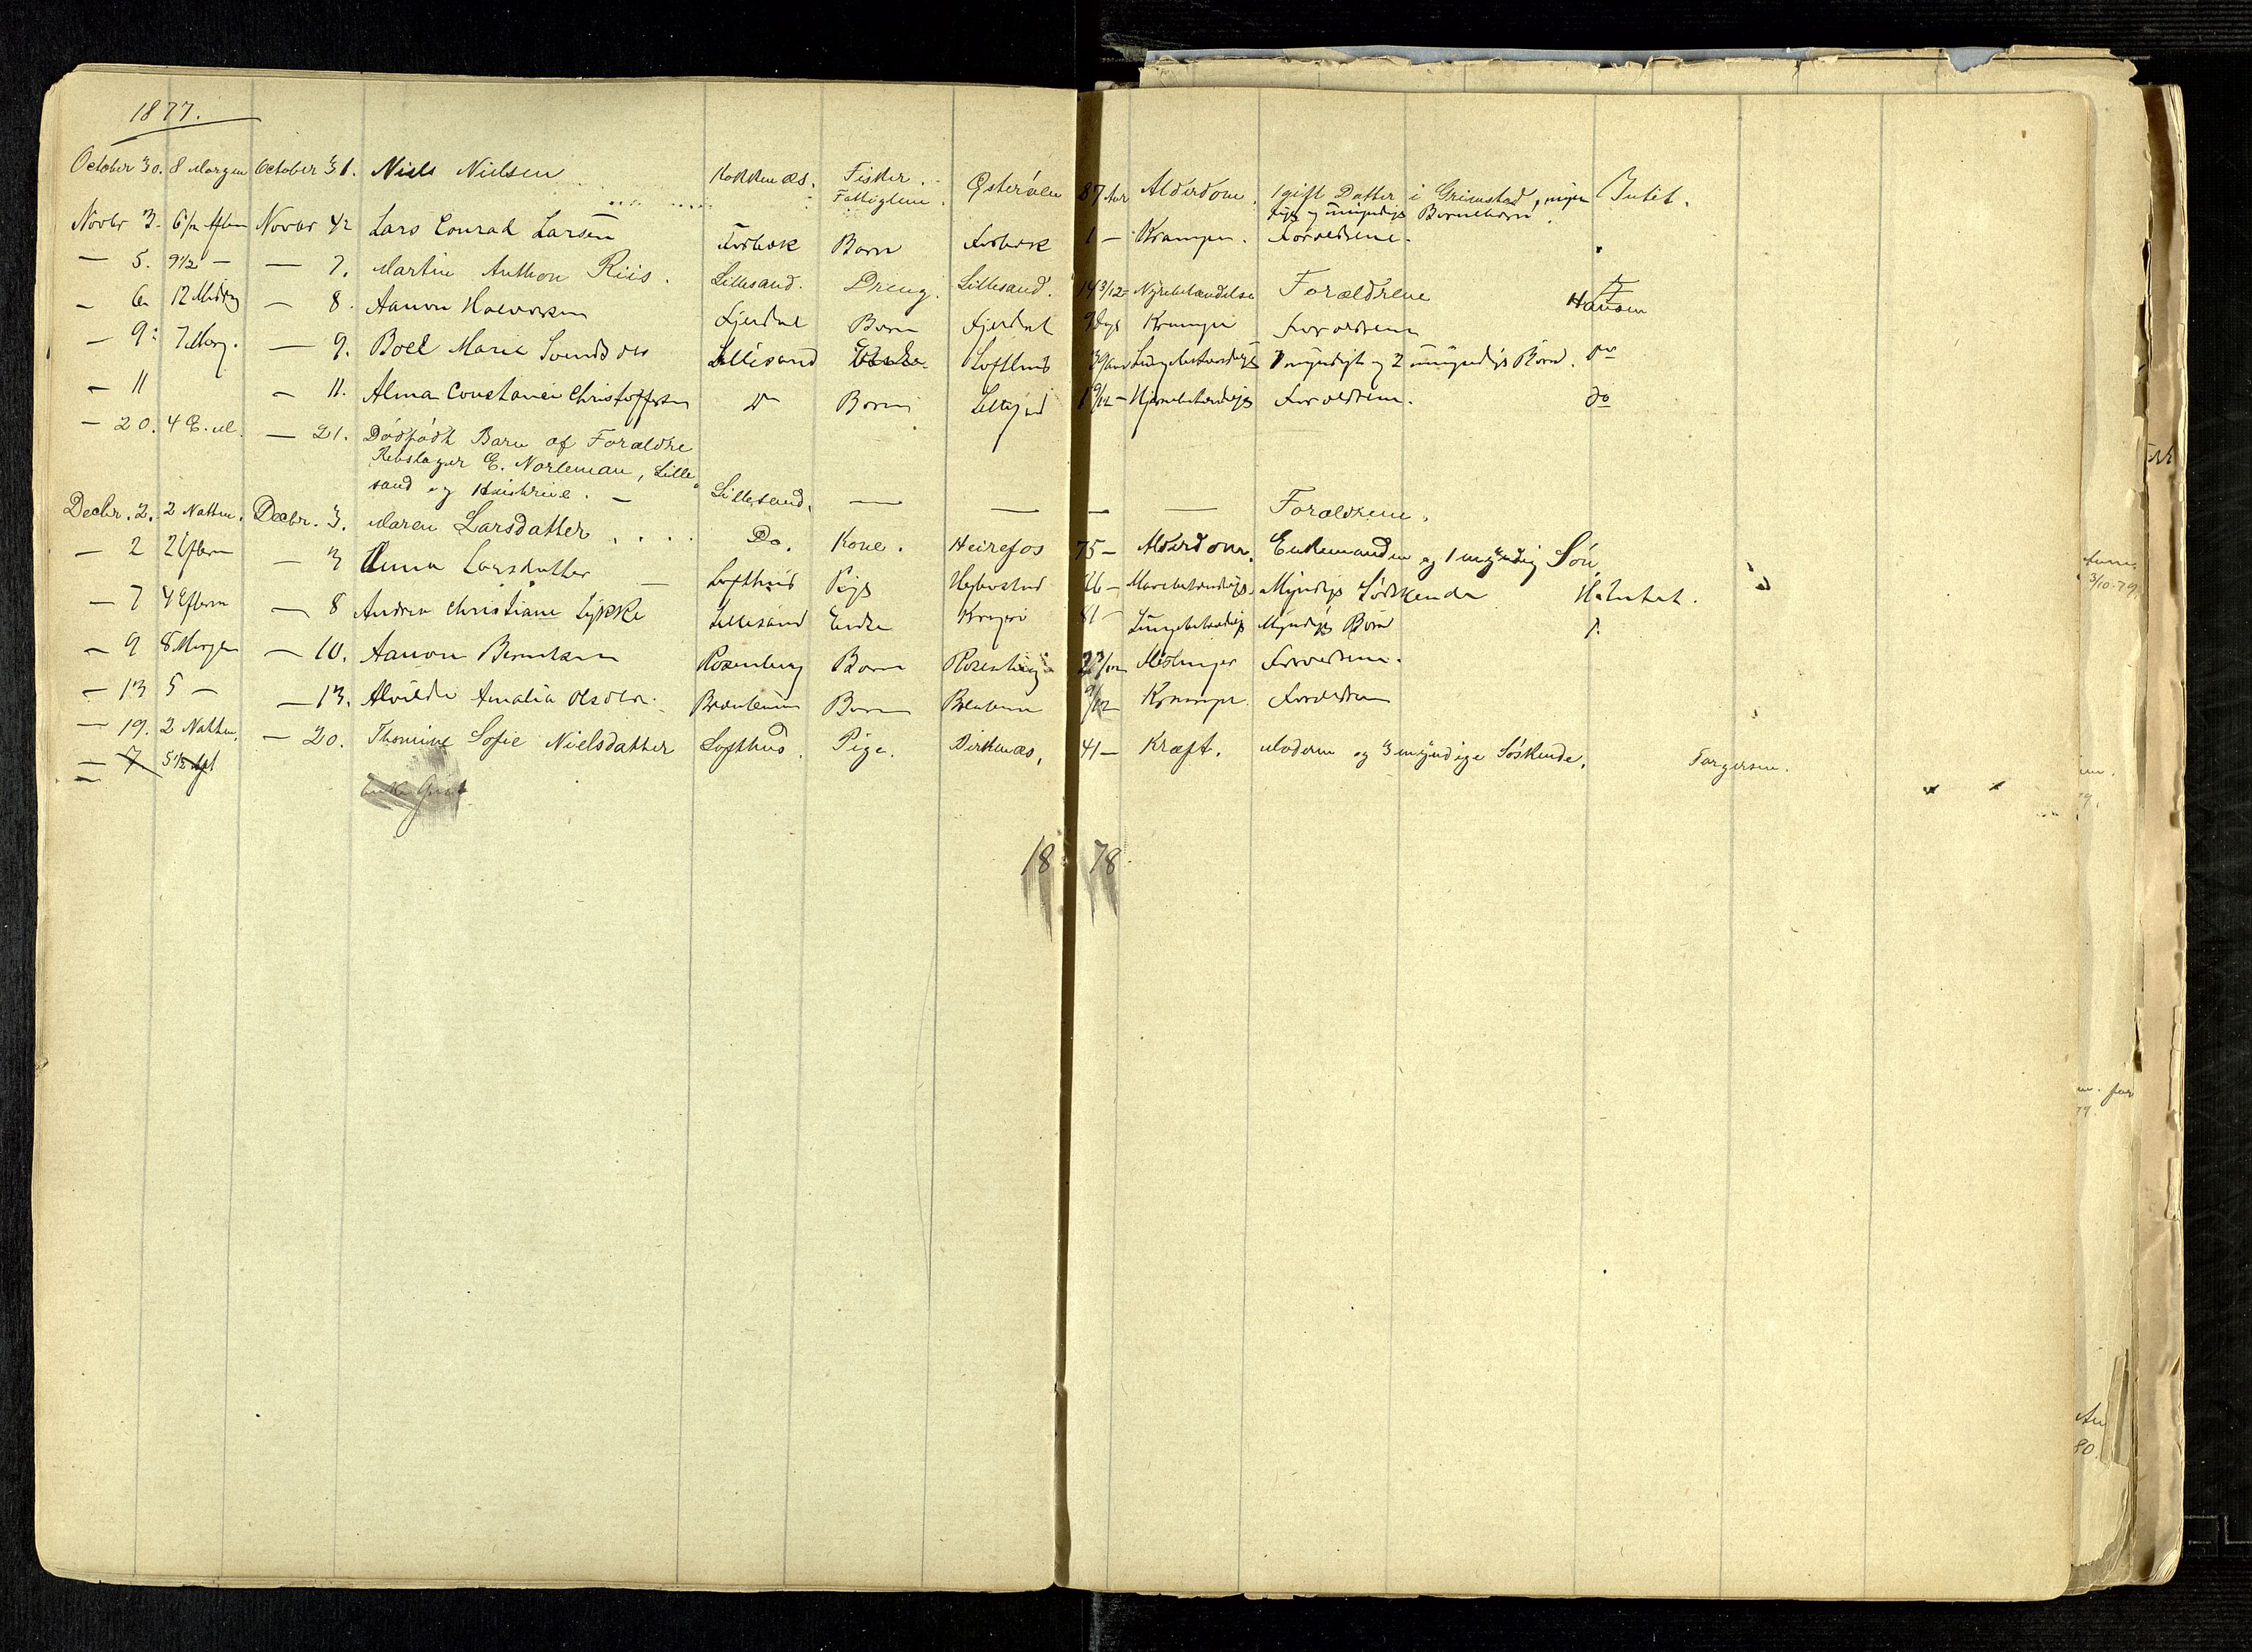 1877.
October 30. 8 Morgen October 31. Niels Nielsen Kokkenæs. Fisker. Fattiglem. Østerøen 87 Aar Alderdom. 1 gift Datter i Grimstad, Intet.
og umyndige Børnebørn
Novbr 3. 6 1/2 Aften Novbr 4 Lars Conrad Larsen Barn 1 — Krampe. Forældrene.
— 5. 9 1/2 — — 7. Martin Anthon Riis. Lillesand. Dreng. Lillesand. 14 3/12 — Nyrebetændelse Forældrene
— 6 12 Middag — 8. Aanon Halvorsen Fjerdal Barn Fjerdal 9 Dage Krampe Forældrene Hansen
— 9. 7 Morg. — 9. Boel Marie Svendsen Lillesand Lofthus 39 Aar Lungebetændelse 1 myndigt og 2 umyndige Børn. Do
— 11 — 11. Alma Constance Christoffersen Do Barn Lillesand 1 9/12 — Hjernebetændelse Forældrene. do
— 20. 4 E.M. — 21. Dødfødt Barn af Forældre
Rebslager E. Norleman, Lille-
sand og Hustrue. — Lillesand. — — — — Forældrene.
Decbr. 2. 2 Natten. Decbr. 3. Maren Larsdatter . . . . Do. Kone. Heirefos 75 — Alderdom. Enkemanden og 1 myndig Søn
— 2 2 Efterm — 3 Anna Larsdatter — Lofthus Pige 46 — Mavebetændelse. Myndige Sødskende
— 7 4 Efterm — 8 Andrea Christiane Lykke Lillesand Enke Kragerø 81 — Lungebetændelse Myndige Børn
— 9 8 Morgen — 10. Aanon Berntsen Rosenberg Barn Rosenberg Meslinger Forældrene.
— 13 5 — — 13. Alvilde Amalia Olsen. Barn 9/12 Krampe. Forældrene
— 19. 2 Natten. — 20. Thomine Sofie Nielsdatter Lofthus. Pige. Dirkenæs, 41 — Kræft. Moderen og 3 myndige Søskende. Torgersen.
— 7. 5 1/2 Aft
18 78